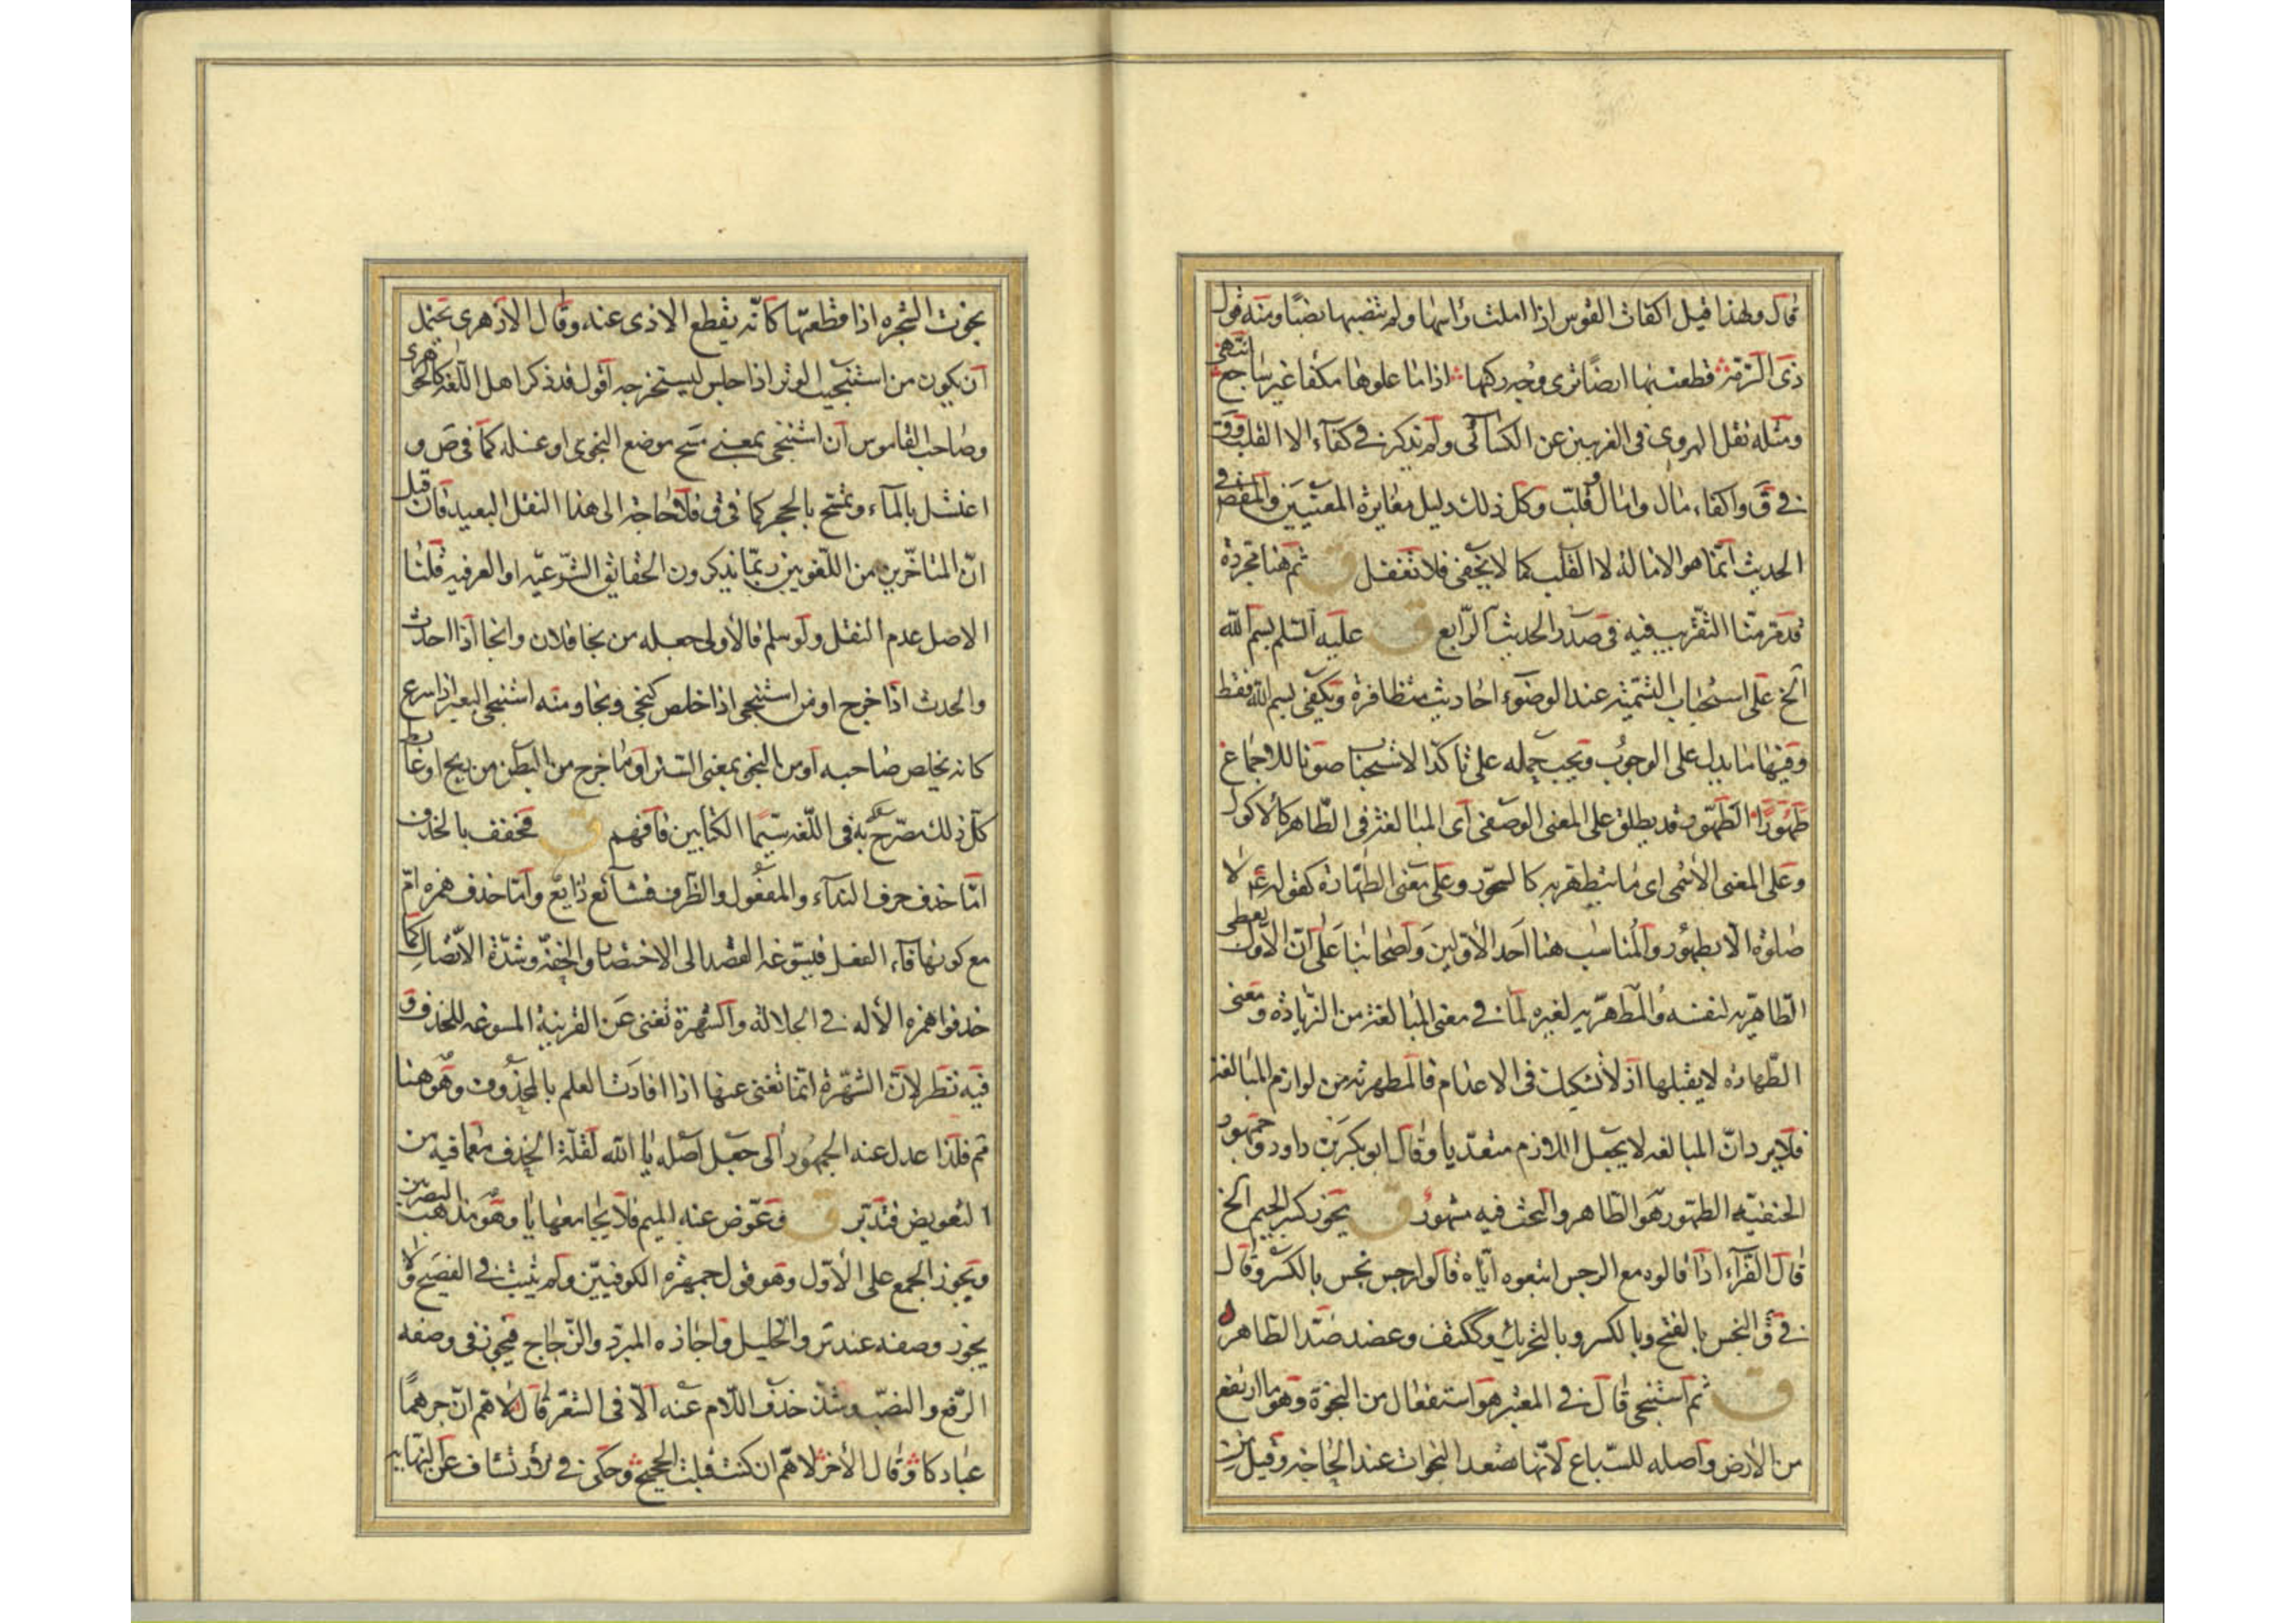 قال ولهذا قيل اكفات القوس اذا املت راسها ولم تنصبها نصبا ومنه قول
ذى الرمة قطعت بها ارضا ترى وجه ركبها اذا ما علوها مكفا غير ساجع انتهى
ومثله نقل الهروى فى الغريبين عن الكسائى ولم يذكر فى كفاء الا القلب وق
فى ق واكفاء مال وامال وقلب وكل ذلك دليل مغايرة المعنيين والمقص فى
الحديث انما هو الامالة لا القلب كما لا يخفى فلا تغفل ق ثم هنا مجردة
قد مر منا التقريب فيه فى صدر الحديث الرابع ق عليه السلم بسم الله
الخ على استحباب التسمية عند الوضوء احاديث متظافرة ويكفى بسم الله فقط
وفيها ما يدل على الوجوب ويجب حمله على تاكد الاستحباب صونا للاجماع
طهورا الطهور قد يطلق على المعنى الوصفى اى المبالغة فى الطاهر كالاكول
وعلى المعنى الاسمى اى ما يتطهر به كالسحور وعلى معنى الطهارة كقوله ع لا
صلوة الا بطهور والمناسب هنا احد الاولين واصحابنا على ان الاول يعطى
الطاهرية لنفسه والمطهرية لغيره لما فى معنى المبالغة من الزيادة ومعنى
الطهارة لا يقبلها اذ لا تشكيك فى الاعدام فالمطهرية من لوازم المبالغة
فلا يرد ان المبالغه لا يجعل اللازم متعديا وقال ابو بكر بن داود وجمهور
الحنفيه الطهور هو الطاهر والبحث فيه مشهور ق يجوز كسر الجيم الخ
قال الفراء اذا قالوه مع الرجس اتبعوه اياه قالوا رجس نجس بالكسر وقال
فى ق النجس بالفتح وبالكسر وبالتحريك وككتف وعضد ضد الطاهر
ق ثم استنجى قال فى المعتبر هو استفعال من النجوة وهو ما ارتفع
من الارض واصله للسباع لانها تصعد النجوات عند الحاجة وقيل من
نجوت الشجره اذا قطعتها كانه يقطع الاذى عنه وقال الازهرى يحتمل
ان يكون من استنجيت الوتر اذا خلس ليستخرجه اقول قد ذكر اهل اللغه كالجوهرى
وصاحب القاموس ان استنجى بمعنى مسح موضع النجوى او غسله كما فى ص و
اغتسل بالماء وتمسح بالحجر كما فى ق فلا حاجة الى هذا النقل البعيد فان قيل
ان المتاخرين من اللغويين ربما يذكرون الحقايق الشرعيه او العرفيه قلنا
الاصل عدم النقل ولو سلم فالاولى جعله من نجا فلان وانجا اذا احدث
والحدث اذا خرج او من استنجى اذا خلص كنجى ونجا ومنه استنجى البعير اذا اسرع
كانه يخلص صاحبه او من النجو بمعنى الستر او ما خرج من البطن من ريح او غايط
كل ذلك مصرح به فى اللغه سيما الكتابين فافهم ق فخفف بالحذف
اما حذف حرف النداء والمفعول والظرف فشائع ذايع واما حذف همزه ام
مع كونها فاء الفعل فيسوغه القصد الى الاختصار والخفة وشدة الاتصال كما
حذفوا همزه الاله فى الجلالة والشهرة تغنى عن القرينة المسوغه للحذف و
فيه نظر لان الشهرة انما تغنى عنها اذا افادت العلم بالمحذوف وهو هنا
ثم فلذا عدل عنه الجمهور الى جعل اصله يا الله لقلة الحذف مع ما فيه من
التعويض فتدبر ق وعوض عنه الميم فلا يجامعها يا وهو مذهب البصريين
ويجوز الجمع على الاول وهو قول جمهره الكوفيين ولم يثبت فى الفصيح ولا
يجوز وصفه عند س والخليل واجازه المبرد والزجاج فيجوز فى وصفه
الرفع والنصب وشذ حذف اللام عنه الا فى الشعر قال لاهم ان جرهما
عبادكا وقال الاخر لاهم ان كنت قبلت الحجيج وحكى فى عن النهايه